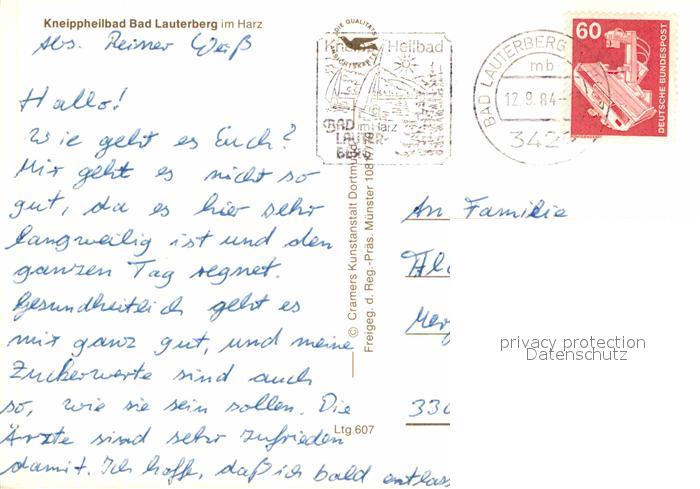 Kneippheilbad Bad Lauterberg im Harz
Abs. Reiner Weiß
Hallo!
Wie geht es Euch?
Mir geht es nicht so
gut, da es hier sehr
langweilig ist und den
ganzen Tag regnet.
Gesundheitlich geht es
mir ganz gut, und meine
Zuckerwerte sind auch
so, wie sie sein sollen. Die
Ärzte sind sehr zufrieden
damit. Ich hoffe, daß ich bald entlass
Kneipp Heilbad
BAD im Harz
LAUTER-
BERG
BAD LAUTERBERG
mb
12.9.84
342
60
DEUTSCHE BUNDESPOST
© Cramers Kunstanstalt Dortmund
Freigeg. d. Reg.-Präs. Münster
Ltg 607
An Familie
330
privacy protection
Datenschutz